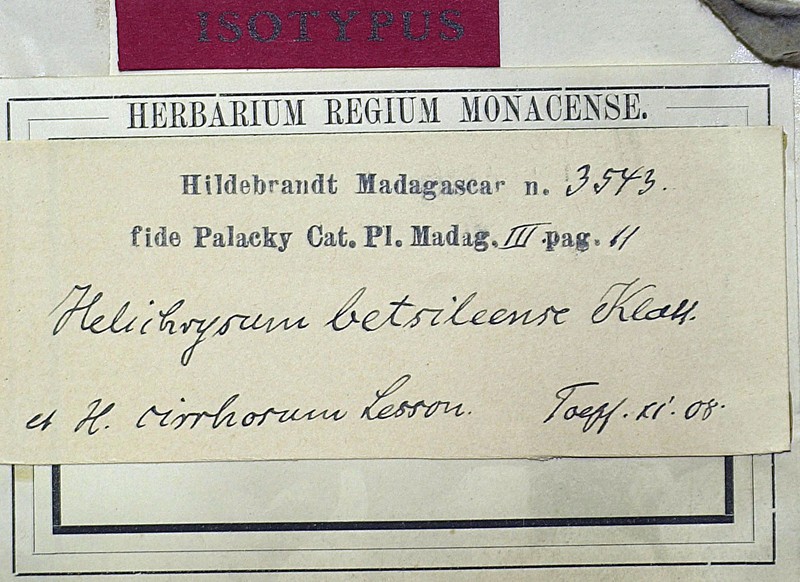 ISOTYPUS
HERBARIUM REGIUM MONACENSE.
Hildebrandt Madagascar n. 3543.
fide Palacky Cat. Pl. Madag. III pag. 11
Helichrysum betsileense Klatt.
et H. cirrhosum Lesson. Toepf. XI. 08.